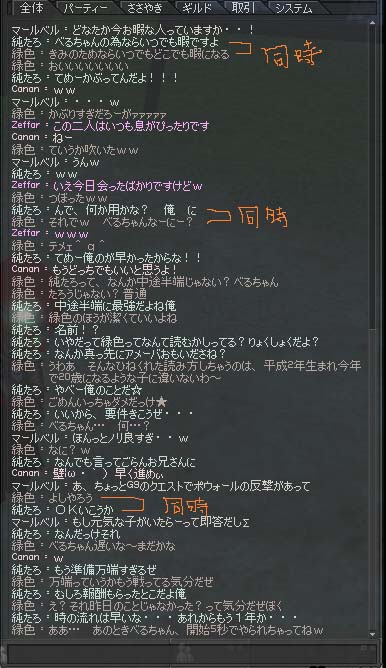 全体 パーティー ささやき ギルド 取引 システム
マールベル : どなたか今お暇な人っていますか・・！
純たろ : べるちゃんの為ならいつでも暇ですよ
緑色 : きみのためならいつでもどこでも暇になる
同時
緑色 : おいいいいいいい
純たろ : てめーかぶってんだよ！！！
Canan : ｗｗ
マールベル : ・・・ｗ
緑色 : かぶりすぎだろーがァァァァァ
Zeffar : この二人はいつも息がぴったりです
Canan : ねー
緑色 : ていうか吹いたｗｗ
マールベル : うんｗ
純たろ : ｗｗ
Zeffar : いえ今日会ったばかりですけどｗ
緑色 : つぼったｗｗ
純たろ : んで、何か用かな？ 俺 に
緑色 : それでｗ べるちゃんなーにー？
同時
Zeffar : ｗｗｗ
緑色 : テメェ＾ｑ＾
純たろ : てめー俺のが早かったからな！！
Canan : もうどっちでもいいと思うよ！
緑色 : 純たろって、なんか中途半端じゃない？べるちゃん
緑色 : たろうじゃない？普通
純たろ : 中途半端に最強だよね俺
緑色 : 緑色のほうが潔くていいよね
純たろ : 名前！？
純たろ : いやだって緑色ってなんて読むかしってる？りょくしょくだよ？
純たろ : なんか真っ先にアメーバおもいださね？
緑色 : うわあ そんなひねくれた読み方しちゃうのは、平成2年生まれ今年
で20歳になるような子に違いないわ～
純たろ : やべー俺のことだ☆
緑色 : ごめんいっちゃダメだっけ★
緑色 : べるちゃん… 何…？
純たろ : いいから、要件きこうぜ・・・
マールベル : ほんっとノリ良すぎ・・ｗ
緑色 : なに？ｗ
純たろ : なんでも言ってごらんお兄さんに
Canan : 壁(ω・ ) 早く進めぃ
マールベル : あ、ちょっとG9のクエストでボウォールの反撃があって
緑色 : よしやろう
純たろ : ＯＫいこうか
同時
マールベル : もし元気な子がいたらーって即答だしΣ
純たろ : なんだっけそれ
緑色 : べるちゃん遅いな～まだかな
Canan : ｗ
純たろ : もう準備万端すぎるぜ
緑色 : 万端っていうかもう戦ってる気分だぜ
純たろ : むしろ報酬もらったとこだよ俺
緑色 : え？それ昨日のことじゃなかった？って気分だぜぼく
純たろ : 時の流れは早いな・・・あれからもう１年か・・・
緑色 : ああ… あのときべるちゃん、開始5秒でやられちゃってねｗ